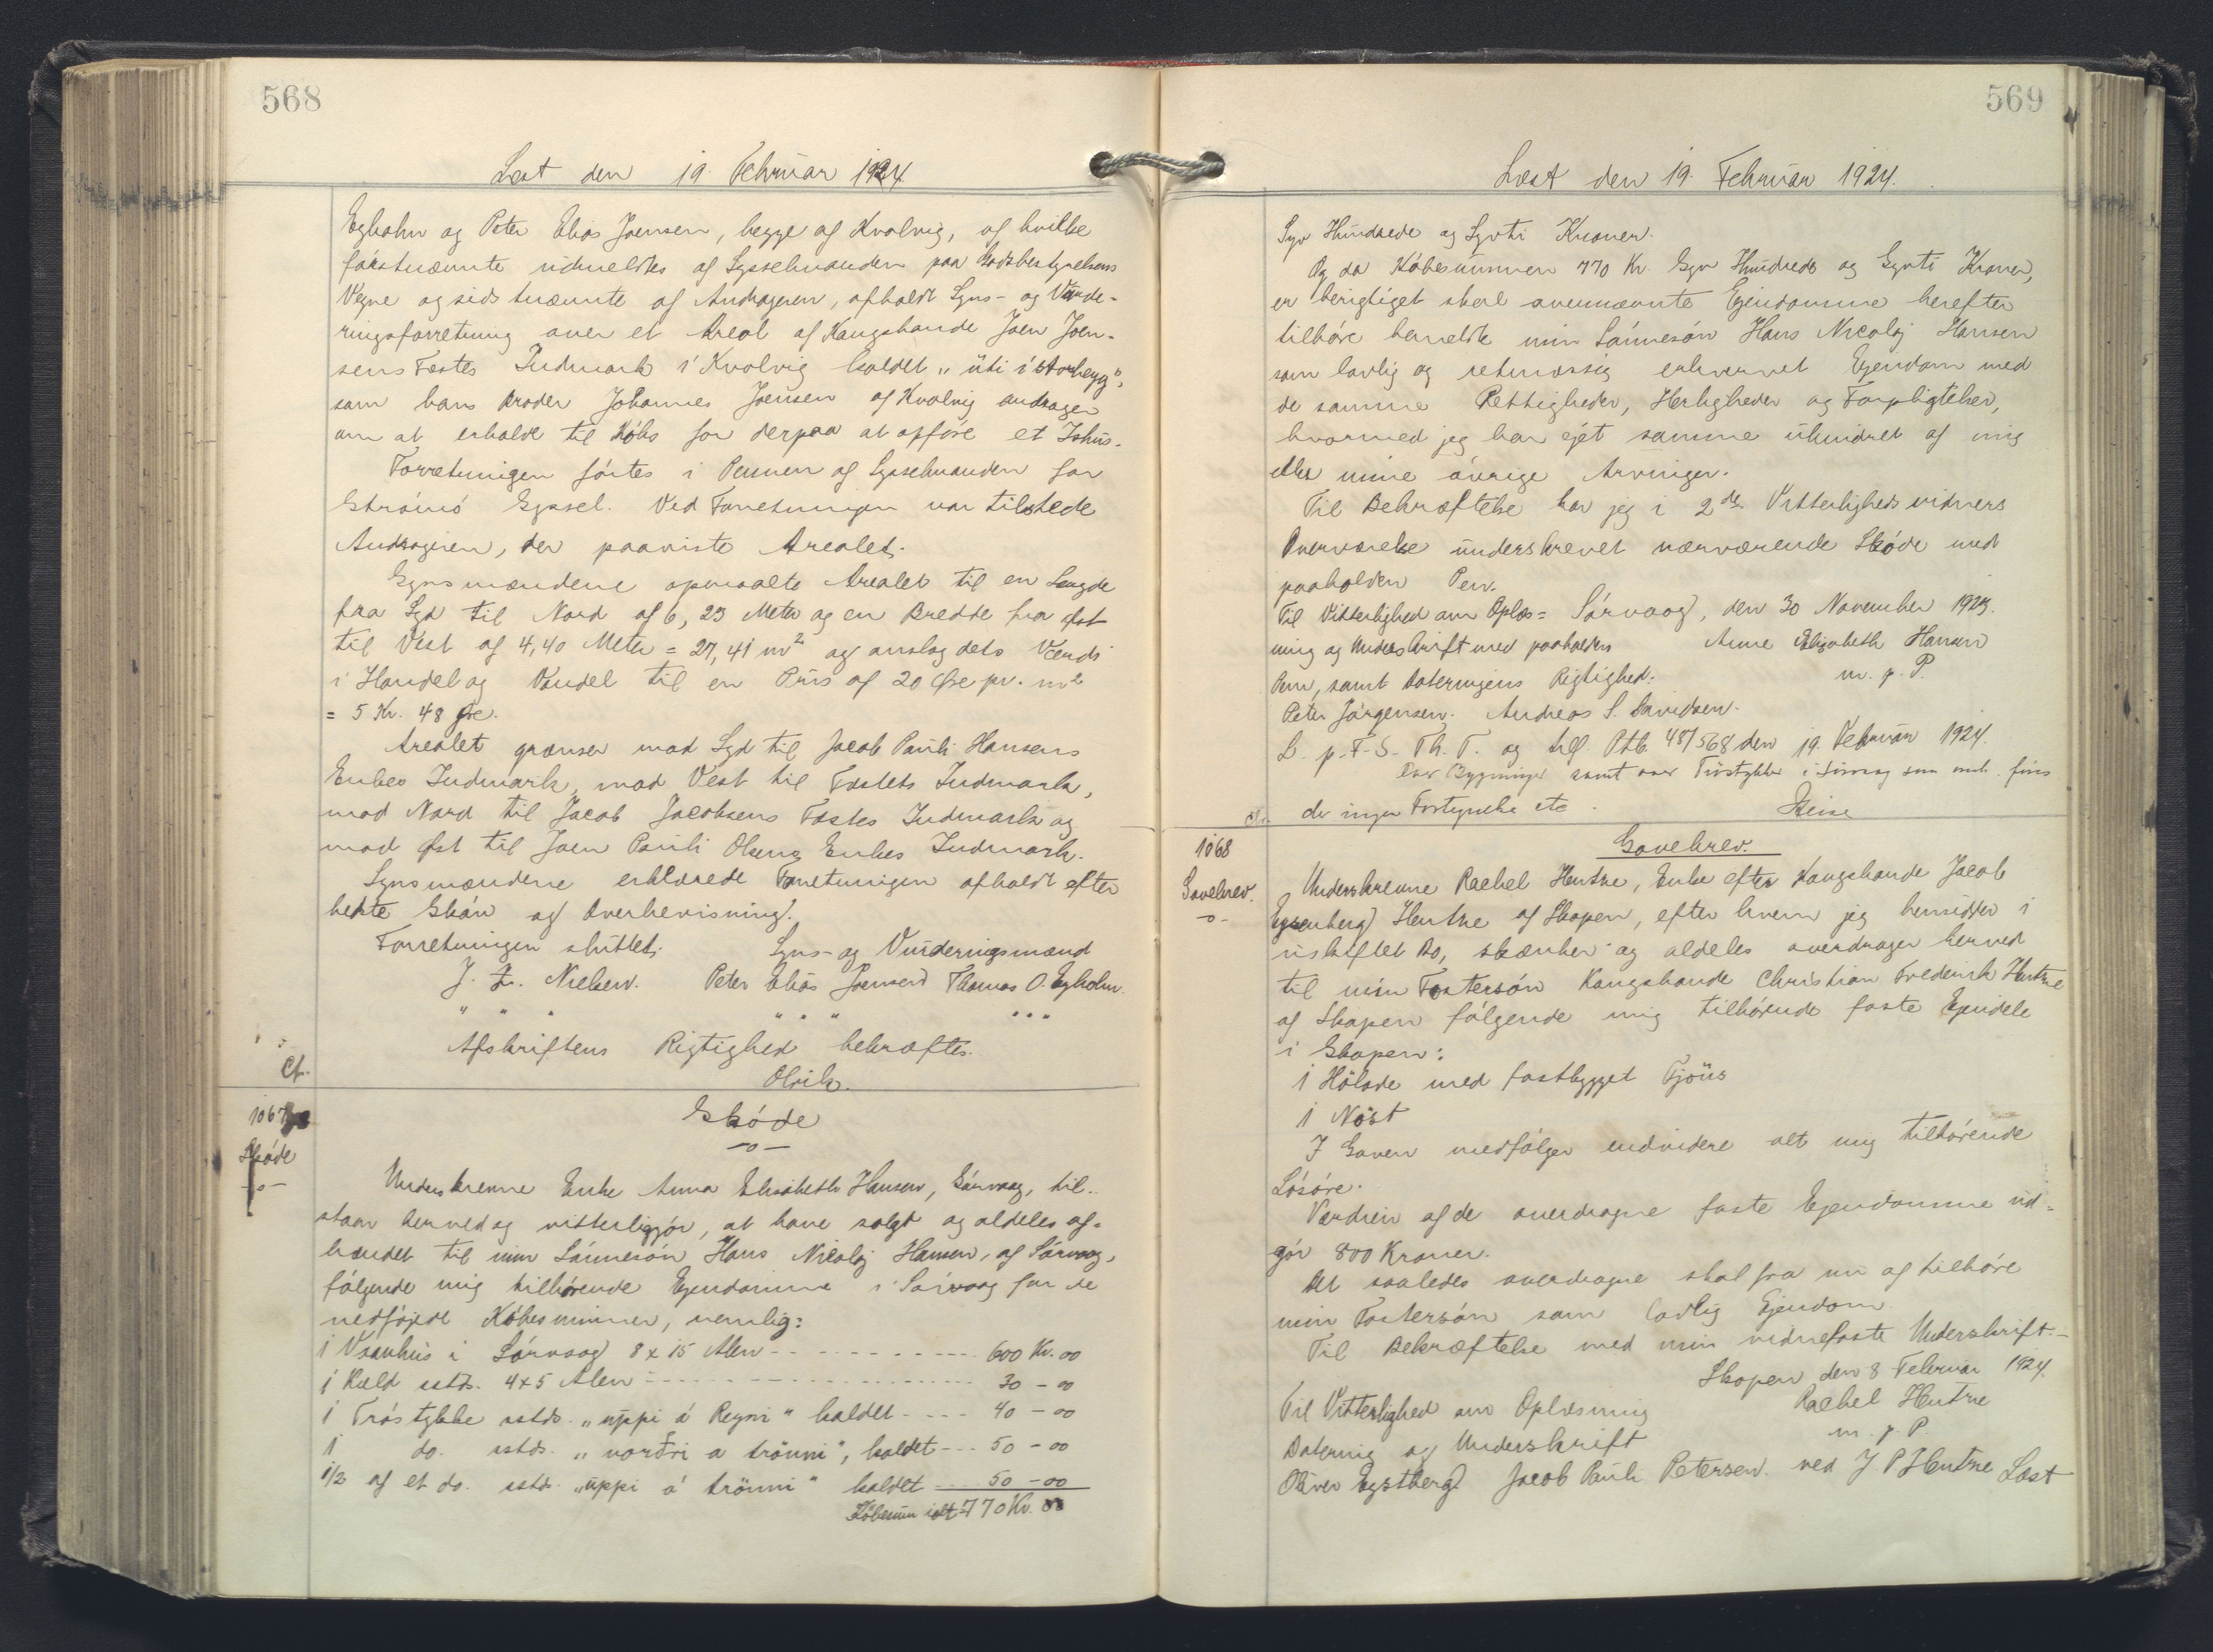 568
Læst den 19. Februar 1924.
Egholm og Peter Elias Joensen, begge af Kvalvig, af hvilke
førstnævnte udmeldtes af Sysselmanden paa Godsbestyrelsens
Vegne og sidstnævnte af Andrageren, afholdt Syns- og Vurde-
ringsforretning over et Areal af Kongsbonde Joen Joen-
sens Fæstes Indmark i Kvalvig kaldet „úti í Storhegg",
som hans Broder Johannes Joensen af Kvalvig andrager
om at erholde til Købs for derpaa at opføre et Ishus.
Forretningen førtes i Pennen af Sysselmanden for
Strømø Syssel. Ved Forretningen var tilstede
Andrageren, der paaviste Arealet.
Synsmændene opmaalte Arealet til en Længde
fra Syd til Nord af 6,23 Meter og en Bredde fra Øst
til Vest af 4,40 Meter = 27,41 m² og anslog dets Værdi
i Handel og Vandel til en Pris af 20 Øre pr. m²
= 5 Kr. 48 Øre.
Arealet grænser mod Syd til Jacob Pauli Hansens
Enkes Indmark, mod Vest til Fæstets Indmark,
mod Nord til Jacob Jacobsens Fæstes Indmark og
mod Øst til Joen Pauli Olsens Enkes Indmark.
Synsmændene erklærede Forretningen afholdt efter
bedste Skøn og Overbevisning.
Forretningen sluttet. Syns- og Vurderingsmænd
J. Nielsen. Peter Elias Joensen Thomas O. Egholm.
" " " " " " " " "
Afskriftens Rigtighed bekræftes.
Cf. Olrik.
1067 Skøde
Skøde
-o- -o-
Underskrevne Enke Anna Elisabeth Hansen, Sørvaag, til-
staar herved og vitterliggør, at have solgt og aldeles af-
hændet til min Sønnesøn Hans Nicolaj Hansen, af Sørvaag,
følgende mig tilhørende Ejendomme i Sørvaag for de
vedføjede Købesummer, nemlig:
1 Vaanhus i Sørvaag 8 x 15 Alen - - - 600 Kr. 00
1 Kæld sstds. 4 x 5 Alen - - - 30 - 00
1 Tróstykke sstds. „uppi á Reyni" kaldet - - - 40 - 00
1 do. sstds. „norðri a trönni", kaldet - - - 50 - 00
1/2 af et do. sstds. „uppi á trönni" kaldet - - - 50 - 00
Købesum ialt 770 Kr. 00
569
Læst den 19. Februar 1924.
Syv Hundrede og Syvti Kroner.
Og da Købesummen 770 Kr. Syv Hundrede og Syvti Kroner,
er berigtiget skal ovennævnte Ejendomme herefter
tilhøre bemeldte min Sønnesøn Hans Nicolaj Hansen
som lovlig og retmæssig erhvervet Ejendom med
de samme Rettigheder, Herligheder og Forpligtelser,
hvormed jeg har ejet samme uhindret af mig
eller mine øvrige Arvinger.
Til Bekræftelse har jeg i 2de Vitterlighedsvidners
Overværelse underskrevet nærværende Skøde med
paaholden Pen.
Til Vitterlighed om Oplæs= Sørvaag, den 30 November 1923.
ning og Underskrift med paaholden Anne Elisabeth Hansen
Pen, samt Dateringens Rigtighed: m. p. P.
Peter Jørgensen. Andreas S. Davidsen.
L. p. F. S. Th. T. og tilf. Ptb. 48/568 den 19. Februar 1924.
Over Bygninger samt over Tróstykker i Sørvaag som omh. fins
Cf. der ingen Fortegnelse etc. Heise
1068 Gavebrev.
Gavebrev.
-o-
Underskrevne Rachel Hentze, Enke efter Kongsbonde Jacob
Eysenberg Hentze af Skopen, efter hvem jeg hensidder i
uskiftet Bo, skænker og aldeles overdrager herved
til min Fostersøn Kongsbonde Christian Frederik Hentze
af Skopen følgende mig tilhørende faste Ejendele
i Skopen:
1 Hølade med fastbygget Fjöus
1 Nöst
I Gaven medfølger endvidere alt mig tilhørende
Løsøre.
Værdien af de overdragne faste Ejendomme ud=
gør 800 Kroner.
Det saaledes overdragne skal fra nu af tilhøre
min Fostersøn som lovlig Ejendom.
Til Bekræftelse med min vidnefaste Underskrift.-
Skopen den 8 Februar 1924.
Til Vitterlighed om Oplæsning Rachel Hentze
Datering og Underskrift m. p. P.
Oliver Eystberg Jacob Pauli Petersen. ved J. P. Hentze Læst